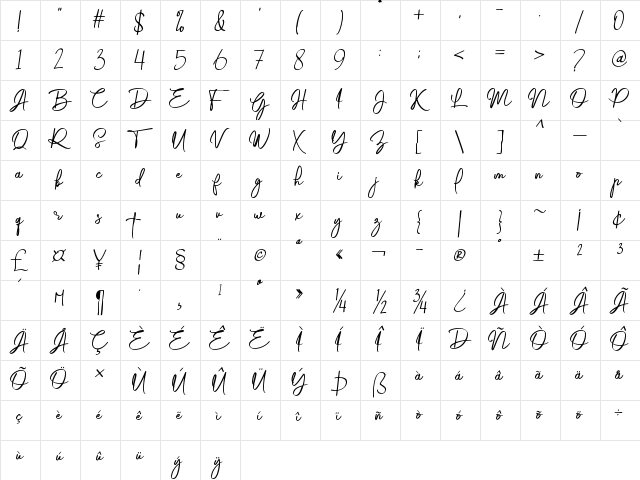 ! " # $ % & ' ( ) * + , - . / 0
1 2 3 4 5 6 7 8 9 : ; < = > ? @
A B C D E F G H I J K L M N O P
Q R S T U V W X Y Z [ \ ] ^ _ `
a b c d e f g h i j k l m n o p
q r s t u v w x y z { | } ~ ¡ ¢
£ ¤ ¥ ¦ § ¨ © ª « ¬ - ® ¯ ° ± 2 3
´ µ ¶ · ¸ 1 º » 1/4 1/2 3/4 ¿ À Á Â Ã
Ä Å Ç È É Ê Ë Ì Í Î Ï Ð Ñ Ò Ó Ô
Õ Ö × Ù Ú Û Ü Ý Þ ß à á â ã ä å
ç è é ê ë ì í î ï ñ ò ó ô õ ö ÷
ù ú û ü ý ÿ